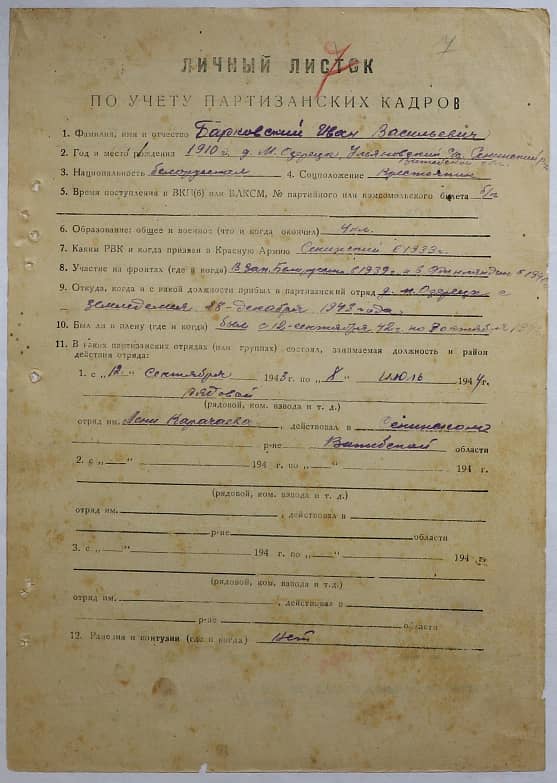 7
ЛИЧНЫЙ ЛИСТОК
7
ПО УЧЕТУ ПАРТИЗАНСКИХ КАДРОВ
1. Фамилия, имя и отчество Барковский Иван Васильевич
2. Год и место рождения 1910 г. д. М. Озерецк, Ульяновский с/с. Сенинский р-
3. Национальность белорусский 4. Соцположение Крестьянин
5. Время поступления в ВКП(б) или ВЛКСМ, № партийного или комсомольского билета б/п
6. Образование: общее и военное (что и когда окончил) 4 кл.
7. Каким РВК и когда призван в Красную Армию Сенинский в 1939 г.
8. Участие на фронтах (где и когда) В зап. в 1939 г. и в Финляндии в 194
9. Откуда, когда и с какой должности прибыл в партизанский отряд д. М. Озерецк с
земледелия 28-декабря 1943 года.
10. Был ли в плену (где и когда) был с 12-сентября 42 г. по 8 октября 19
11. В каких партизанских отрядах (или группах) состоял, занимаемая должность и район
действия отряда:
1. с „12" Сентября 1943 г. по „8" июль 1944 г.
рядовой
(рядовой, ком. взвода и т. д.)
отряд им. Лени Карачаева, действовал в Сенинском
р-не Витебской области
2. с „—" 194 г. по „—" 194 г.
(рядовой, ком. взвода и т. д.)
отряд им. , действовал в
р-не области
3. с „—" 194 г. по „—" 194 г.
(рядовой, ком. взвода и т.д.)
отряд им. , действовал в
р-не области
12. Ранения и контузии (где и когда) нет